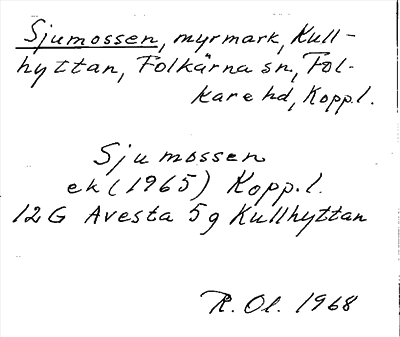 Sjumossen, myrmark, Kull-
hyttan, Folkärna sn, Fol-
kare hd, Kopp.l.
Sjumossen
ek (1965) Kopp.l.
12G Avesta 5g Kullhyttan
R. Ol. 1968